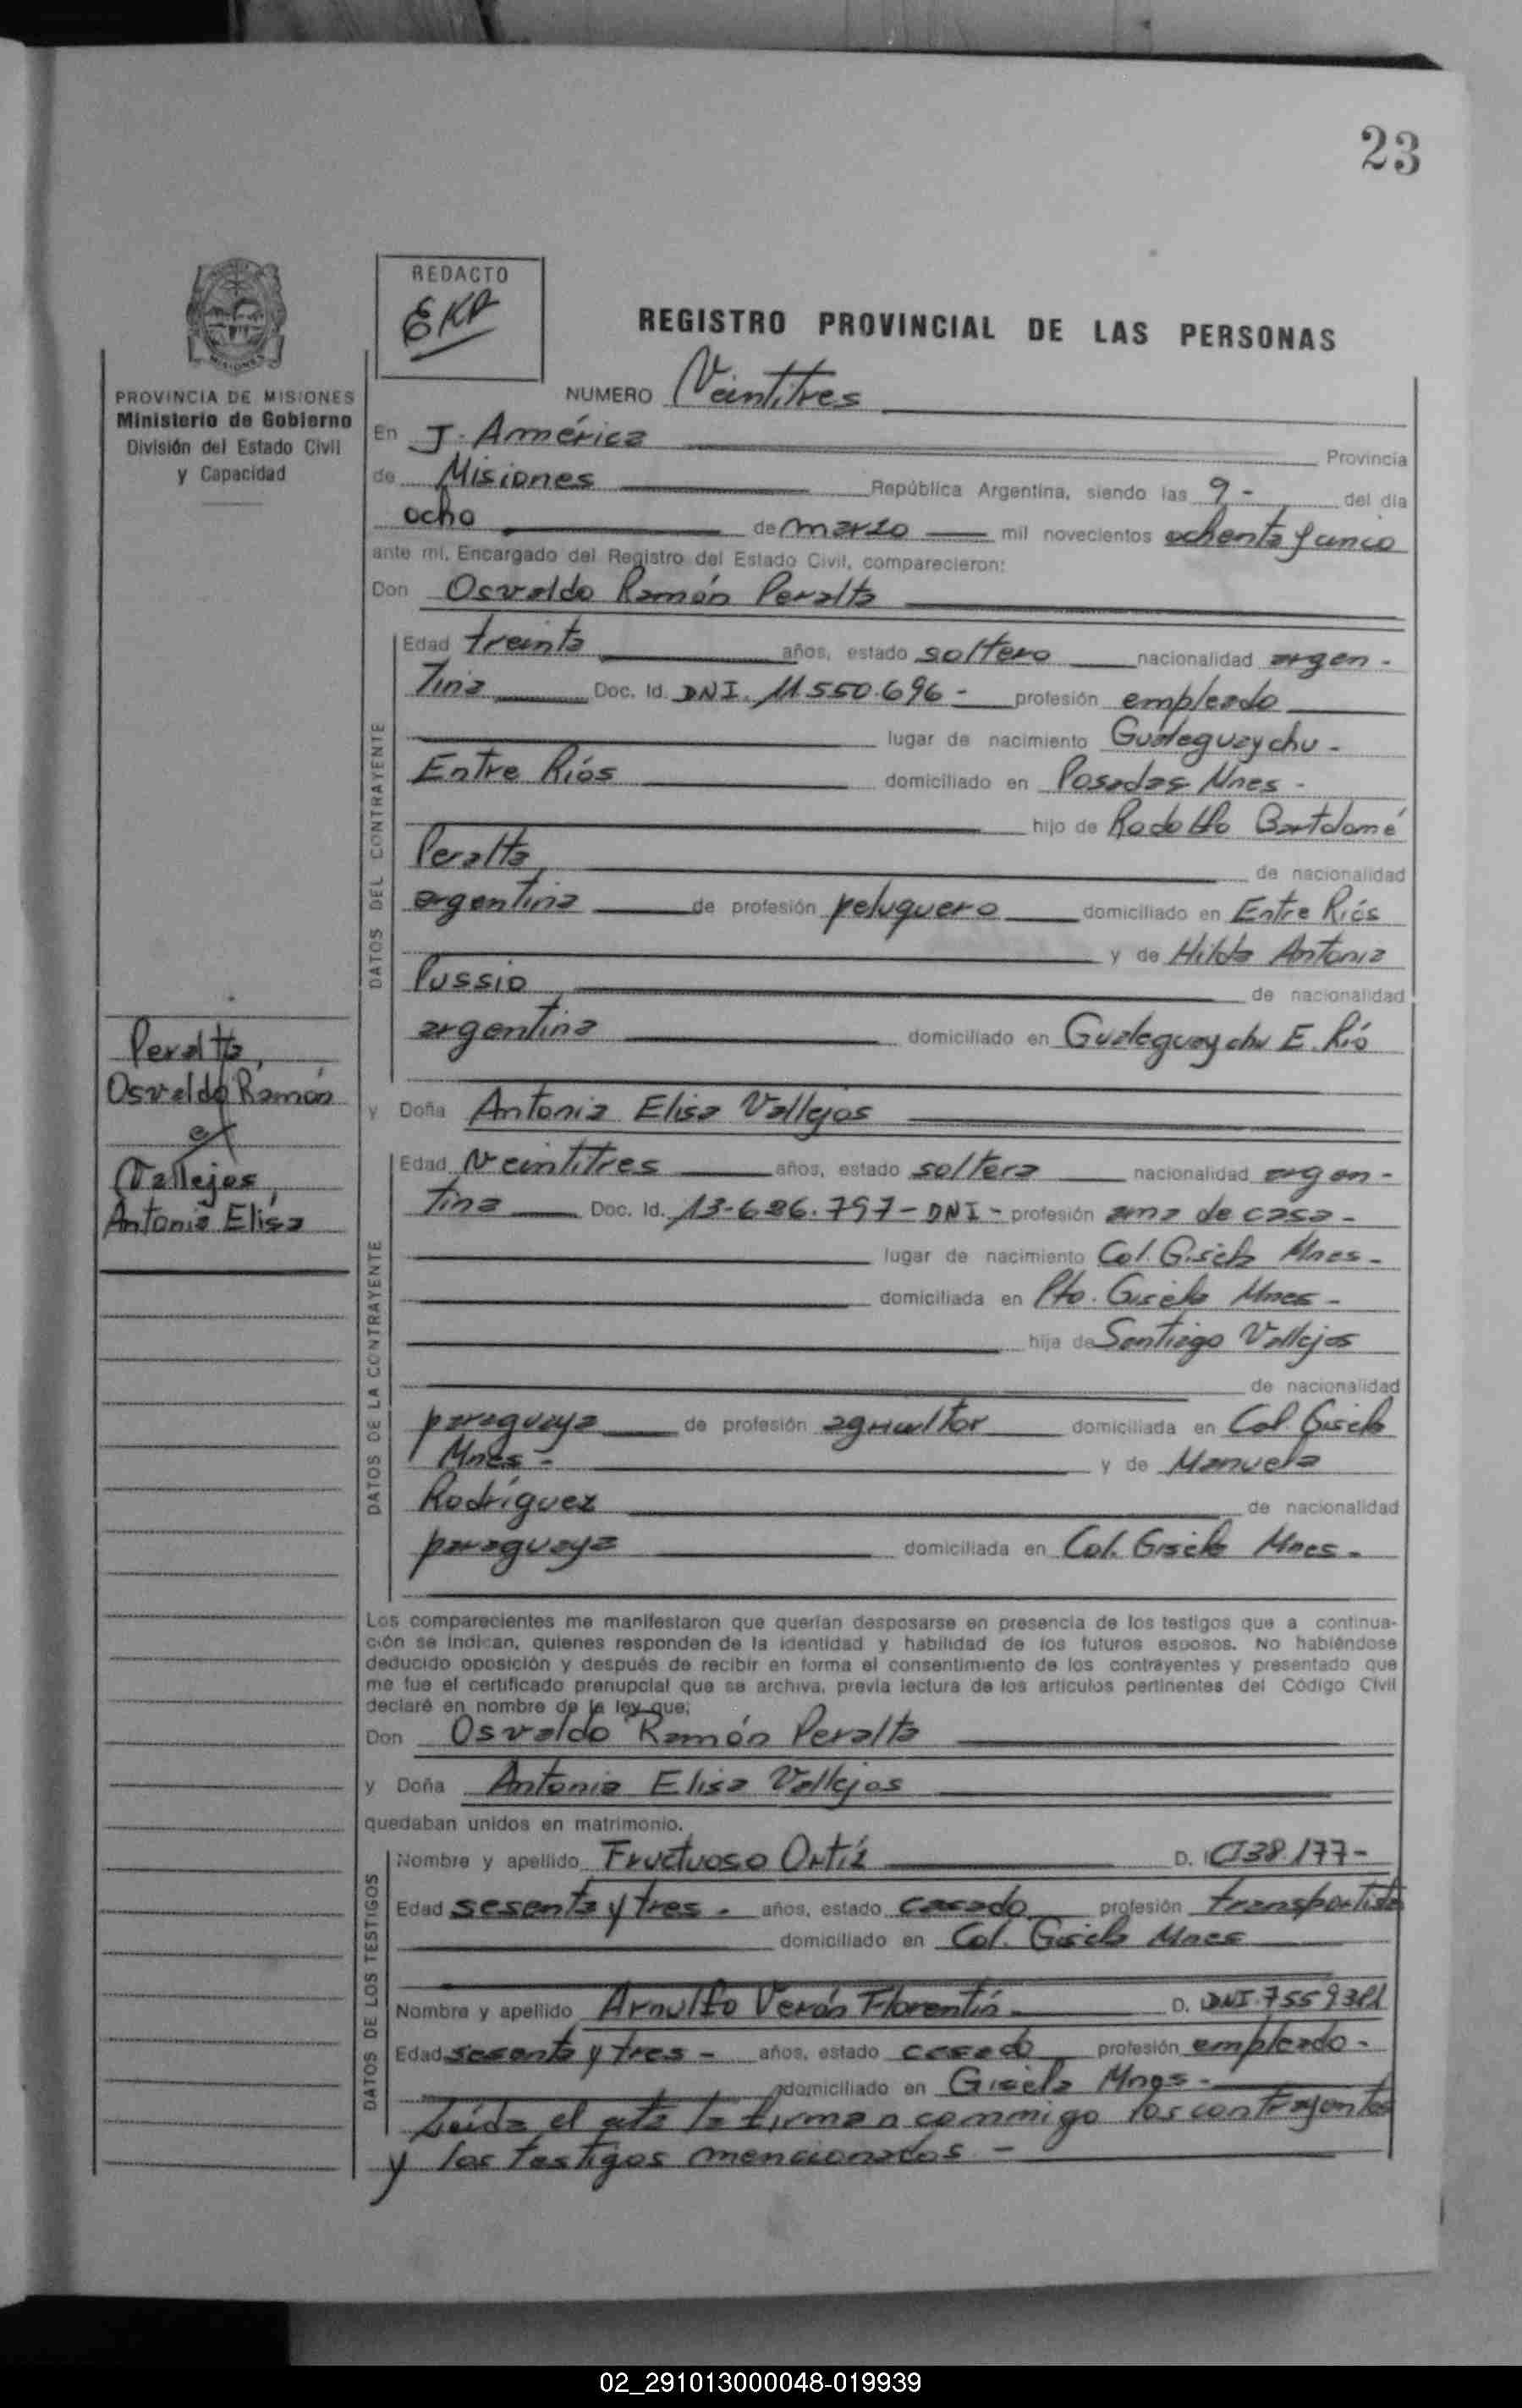 23
REDACTO
EKA
REGISTRO PROVINCIAL DE LAS PERSONAS
MISIONES
PROVINCIA DE MISIONES
Ministerio de Gobierno
División del Estado Civil
y Capacidad
NUMERO Veintitres
En J. América Provincia
de Misiones República Argentina, siendo las 9 - del día
ocho de marzo mil novecientos ochenta y cinco
ante mí, Encargado del Registro del Estado Civil, comparecieron:
Don Osvaldo Ramón Peralta
DATOS DEL CONTRAYENTE
Edad treinta años, estado soltero nacionalidad argen -
tina Doc. Id. DNI. 11.550.696 - profesión empleado
lugar de nacimiento Gualeguaychu -
Entre Ríos domiciliado en Posadas Mnes -
hijo de Rodolfo Bartolomé
Peralta de nacionalidad
argentina de profesión peluquero domiciliado en Entre Ríos
y de Hilda Antonia
Pussio de nacionalidad
argentina domiciliado en Gualeguaychu E. Río
Peralta,
Osvaldo Ramón
c/
Vallejos,
Antonia Elisa
y Doña Antonia Elisa Vallejos
DATOS DE LA CONTRAYENTE
Edad Veintitres años, estado soltera nacionalidad argen -
tina Doc. Id. 13.686.797 - DNI - profesión ama de casa -
lugar de nacimiento Col. Gisela Mnes -
domiciliada en Pto. Gisela Mnes -
hija de Santiago Vallejos
de nacionalidad
paraguaya de profesión agricultor domiciliada en Col. Gisela
Mnes - y de Manuela
Rodríguez de nacionalidad
paraguaya domiciliada en Col. Gisela Mnes -
Los comparecientes me manifestaron que querían desposarse en presencia de los testigos que a continua-
ción se indican, quienes responden de la identidad y habilidad de los futuros esposos. No habiéndose
deducido oposición y después de recibir en forma el consentimiento de los contrayentes y presentado que
me fue el certificado prenupcial que se archiva, previa lectura de los artículos pertinentes del Código Civil
declaré en nombre de la ley que:
Don Osvaldo Ramón Peralta
y Doña Antonia Elisa Vallejos
quedaban unidos en matrimonio.
DATOS DE LOS TESTIGOS
Nombre y apellido Fructuoso Ortíz D. I CI 38.177 -
Edad sesenta y tres - años, estado casado profesión transportista
domiciliado en Col. Gisela Mnes
Nombre y apellido Arnulfo Verón Florentín D. DNI. 7559381
Edad sesenta y tres - años, estado casado profesión empleado -
domiciliado en Gisela Mnes -
Leída el acta la firman conmmigo los contrayentes
y los testigos mencionados -
02_291013000048-019939